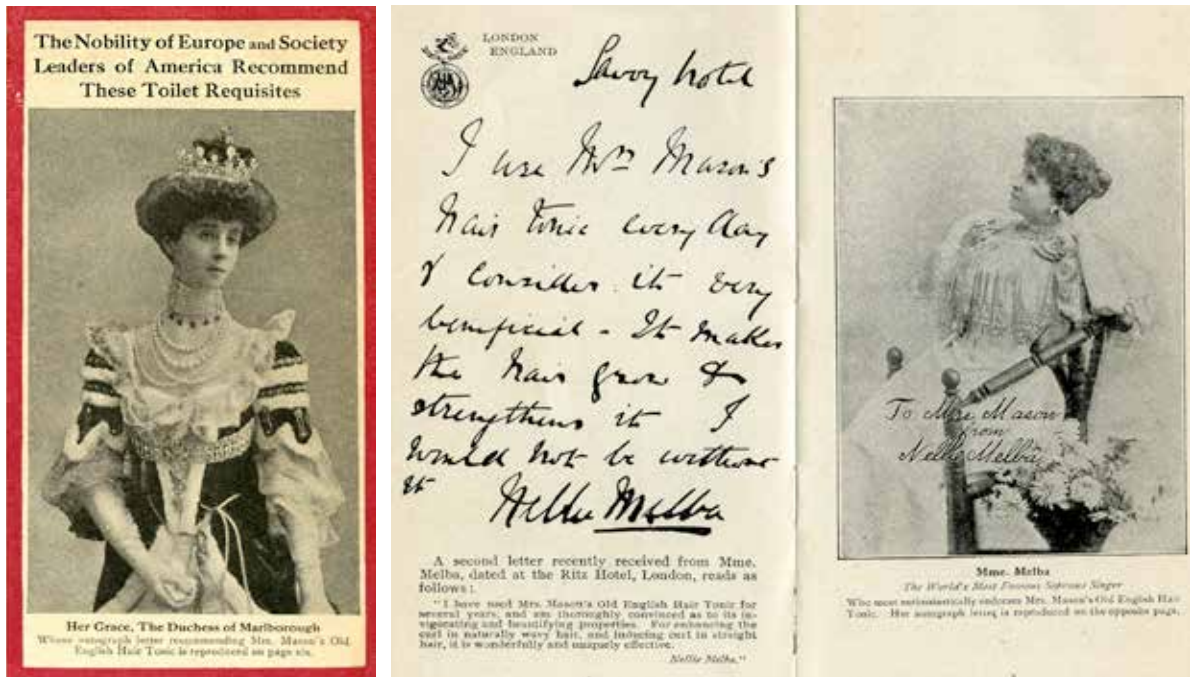 The Nobility of Europe and Society
Leaders of America Recommend
These Toilet Requisites
Her Grace, The Duchess of Marlborough
Whose autograph letter recommending Mrs. Mason's Old
English Hair Tonic is reproduced on page six.
LONDON
ENGLAND
Savoy Hotel
I use Mrs Mason's
hair tonic every day
& consider it very
beneficial - It makes
the hair grow &
strengthens it I
would not be without
it
Nellie Melba
A second letter recently received from Mme.
Melba, dated at the Ritz Hotel, London, reads as
follows:
"I have used Mrs. Mason's Old English Hair Tonic for
several years, and am thoroughly convinced as to its in-
vigorating and beautifying properties. For enhancing the
curl in naturally wavy hair, and inducing curl in straight
hair, it is wonderfully and uniquely effective.
Nellie Melba."
To Mrs. Mason
from
Nellie Melba
Mme. Melba
The World's Most Famous Soprano Singer
Who most enthusiastically endorses Mrs. Mason's Old English Hair
Tonic. Her autograph letter is reproduced on the opposite page.